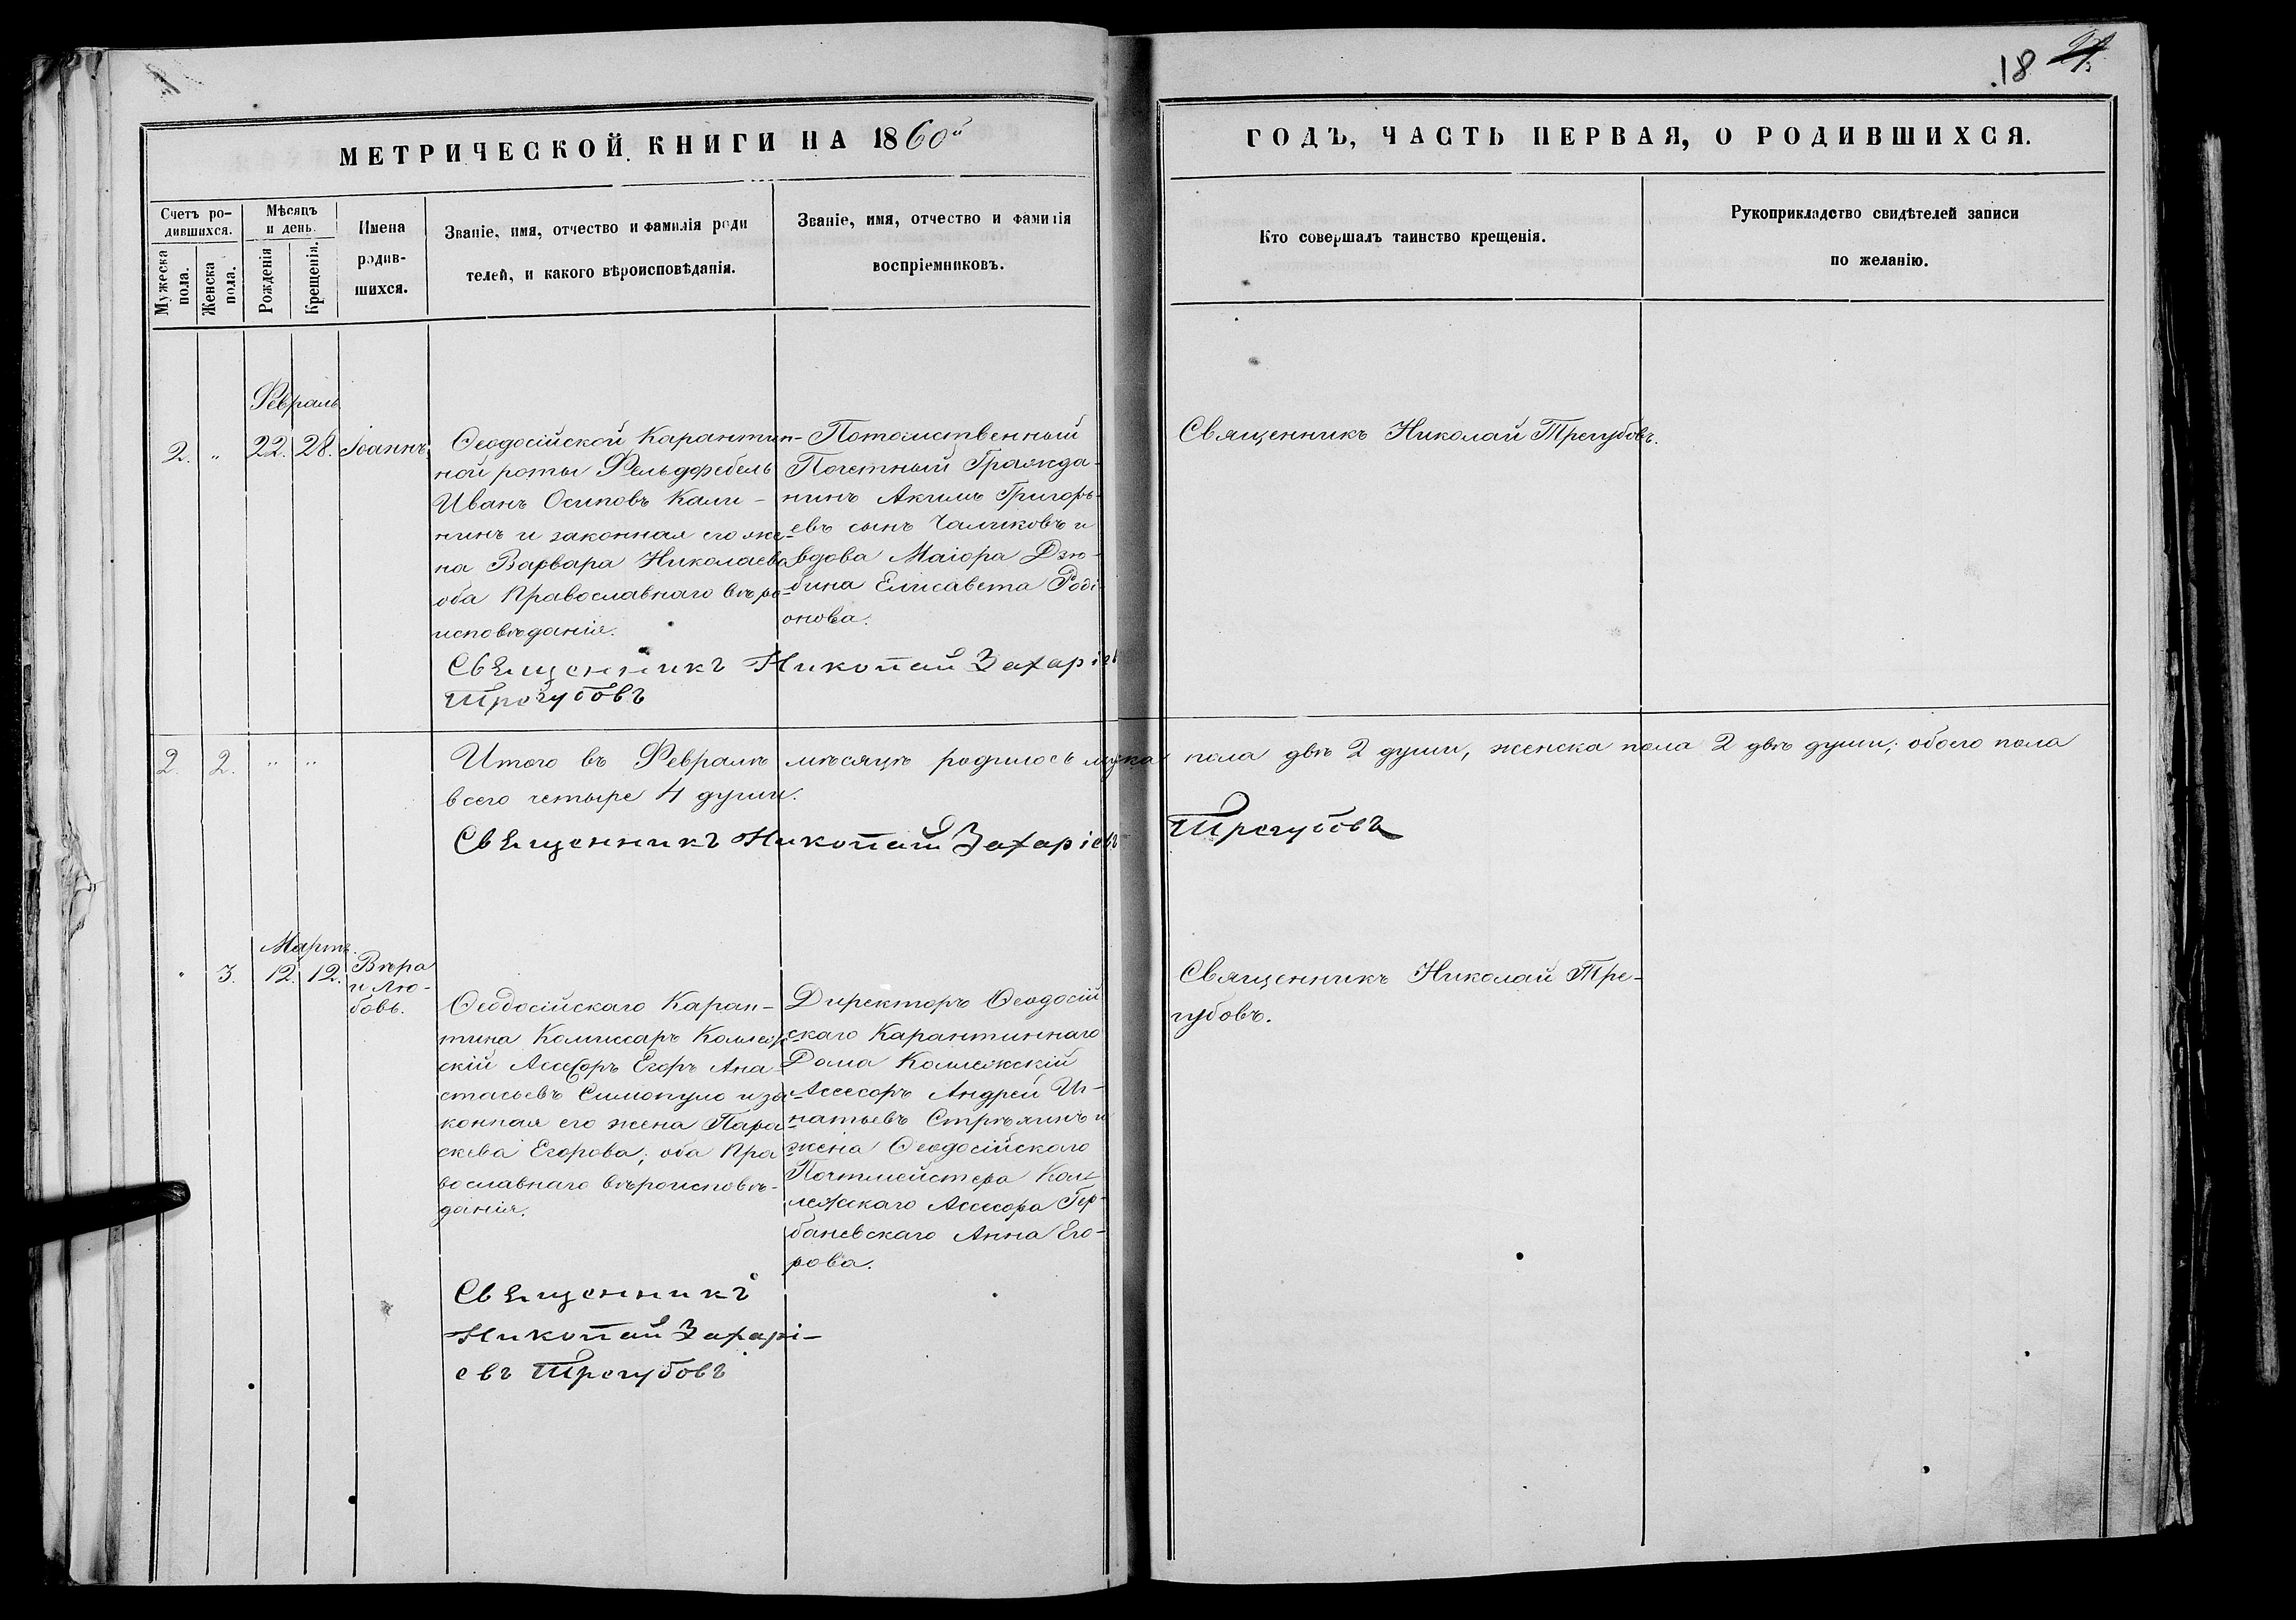 18 27.
МЕТРИЧЕСКОЙ КНИГИ НА 1860й
ГОДЪ, ЧАСТЬ ПЕРВАЯ, О РОДИВШИХСЯ.
Счетъ ро-
дившихся.
Мужеска
пола.
Женска
пола.
Мѣсяцъ
и день.
Рожденія
Крещенія.
Имена
родив-
шихся.
Званіе, имя, отчество и фамилія роди
телей, и какого вѣроисповѣданія.
Званіе, имя, отчество и фамилія
воспріемниковъ.
Кто совершалъ таинство крещенія.
Рукоприкладство свидѣтелей записи
по желанію.
Февраль
2. " 22. 28. Іоаннъ
Ѳеодосійской Карантин-
ной роты Фельдфебель
Иванъ Осиповъ Кали-
нинъ и законная его же-
на Варвара Николаева
оба Православнаго вѣро-
исповѣданія.
Потомственный
Почетный Гражда-
нинъ Акимъ Григорь-
евъ сынъ Чаликовъ и
вдова Маіора Дзю-
бина Елисавета Роді
онова.
Священникъ Николай Трегубовъ.
Священникъ Николай Захаріев
Трегубовъ
2. 2. " "
Итого въ Февралѣ мѣсяцѣ родилось мужа пола двѣ 2 души, женска пола 2 двѣ души; обоего пола
всего четыре 4 души.
Священникъ Николай Захаріевъ Трегубовъ
Мартъ.
" 3. 12. 12. Вѣра
и Лю-
бовь.
Ѳеодосійскаго Каран-
тина Комиссаръ Коллеж
скій Ассесоръ Егоръ Ана
стасьевъ Симопуло и за-
конная его жена Пара-
скева Егорова; оба Пра
вославнаго вѣроисповѣ-
данія.
Директоръ Ѳеодосій
скаго Карантиннаго
Дома Коллежскій
Ассесоръ Андрей Иг-
натьевъ Стрѣлинъ и
жена Ѳеодосійскаго
Почтмейстера Кол
лежскаго Ассесора Гер-
баневскаго Анна Его-
рова.
Священникъ Николай Тре-
губовъ.
Священникъ
Николай Захарі-
евъ Трегубовъ